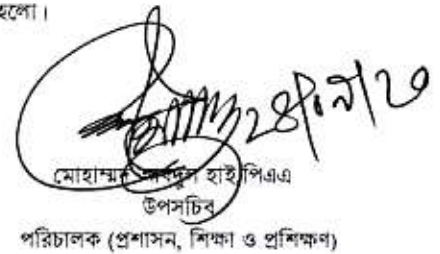 হলো।
২৪/০৯/২০
মোহাম্মদ আবদুল হাই পিএএ
উপসচিব
পরিচালক (প্রশাসন, শিক্ষা ও প্রশিক্ষণ)